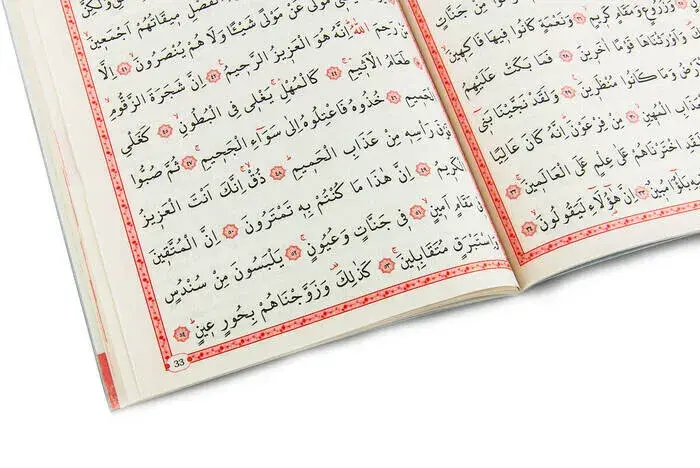 مِنْ جَنَّاتٍ
وَزُرُوعٍ وَمَقَامٍ كَرِيمٍ ٢٦ وَنَعْمَةٍ كَانُوا فِيهَا فَاكِهِينَ
وَاَوْرَثْنَاهَا قَوْمًا اٰخَرِينَ ٢٨ فَمَا بَكَتْ عَلَيْهِمُ
وَمَا كَانُوا مُنْظَرِينَ ٢٩ وَلَقَدْ نَجَّيْنَا بَنِي
الْمُهِينِ ٣٠ مِنْ فِرْعَوْنَ اِنَّهُ كَانَ عَالِيًا
اخْتَرْنَاهُمْ عَلٰى عِلْمٍ عَلَى الْعَالَمِينَ ٣٢
مُبِينٌ ٣٣ اِنَّ هٰٓؤُلَاۤءِ لَيَقُولُونَ ٣٤
الْفَصْلِ مِيقَاتُهُمْ اَجْمَعِينَ
مَوْلًى عَنْ مَوْلًى شَيْئًا وَلَا هُمْ يُنْصَرُونَ ٤١ اِلَّا
رَحِمَ اللّٰهُ اِنَّهُ هُوَ الْعَزِيزُ الرَّحِيمُ ٤٢ اِنَّ شَجَرَةَ الزَّقُّومِ
طَعَامُ الْاَثِيمِ ٤٤ كَالْمُهْلِ يَغْلِي فِي الْبُطُونِ ٤٥ كَغَلْيِ
الْحَمِيمِ ٤٦ خُذُوهُ فَاعْتِلُوهُ اِلٰى سَوَاۤءِ الْجَحِيمِ ٤٧ ثُمَّ صُبُّوا
رَأْسِهِ مِنْ عَذَابِ الْحَمِيمِ ٤٨ ذُقْ اِنَّكَ اَنْتَ الْعَزِيزُ
الْكَرِيمُ ٤٩ اِنَّ هٰذَا مَا كُنْتُمْ بِهِ تَمْتَرُونَ ٥٠ اِنَّ الْمُتَّقِينَ
مَقَامٍ اَمِينٍ ٥١ فِي جَنَّاتٍ وَعُيُونٍ ٥٢ يَلْبَسُونَ مِنْ سُنْدُسٍ
وَاِسْتَبْرَقٍ مُتَقَابِلِينَ ٥٣ كَذٰلِكَ وَزَوَّجْنَاهُمْ بِحُورٍ عِينٍ ٥٤
33